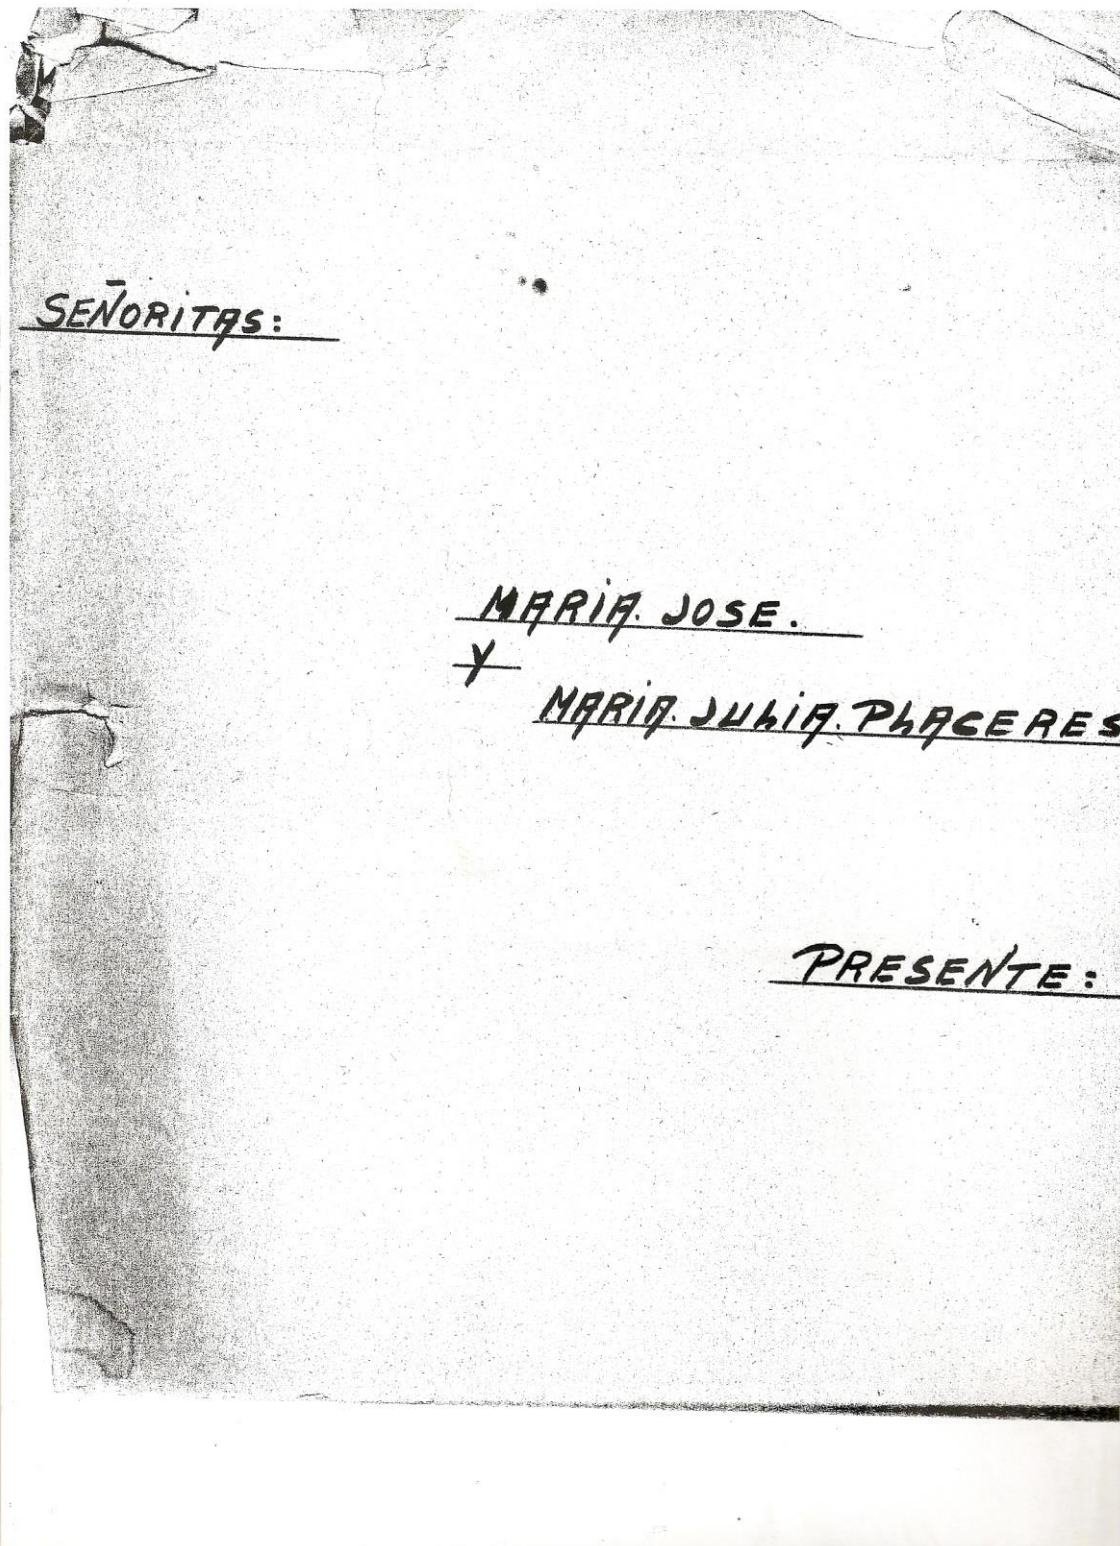 SEÑORITAS:
MARIA. JOSE.
Y
MARIA. JULIA. PLACERES
PRESENTE: